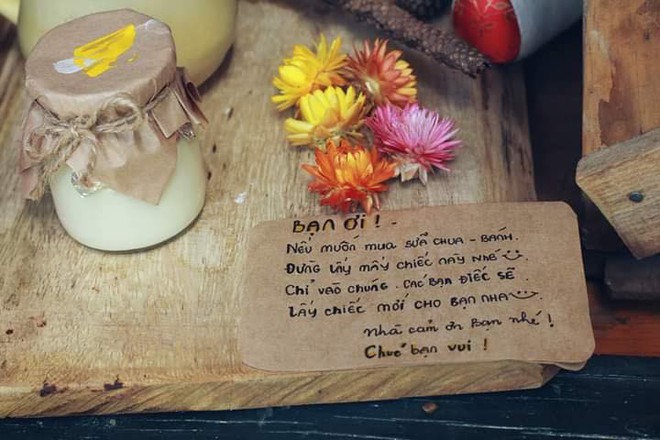 BẠN ƠI ! -
NẾU MUỐN MUA SỮA CHUA - BÁNH.
ĐỪNG LẤY MẤY CHIẾC NÀY NHÉ
CHỈ VÀO CHÚNG. CÁC BẠN ĐIẾC SẼ
LẤY CHIẾC MỚI CHO BẠN NHA
Nhà cảm ơn Bạn nhé !
Chúc bạn vui !